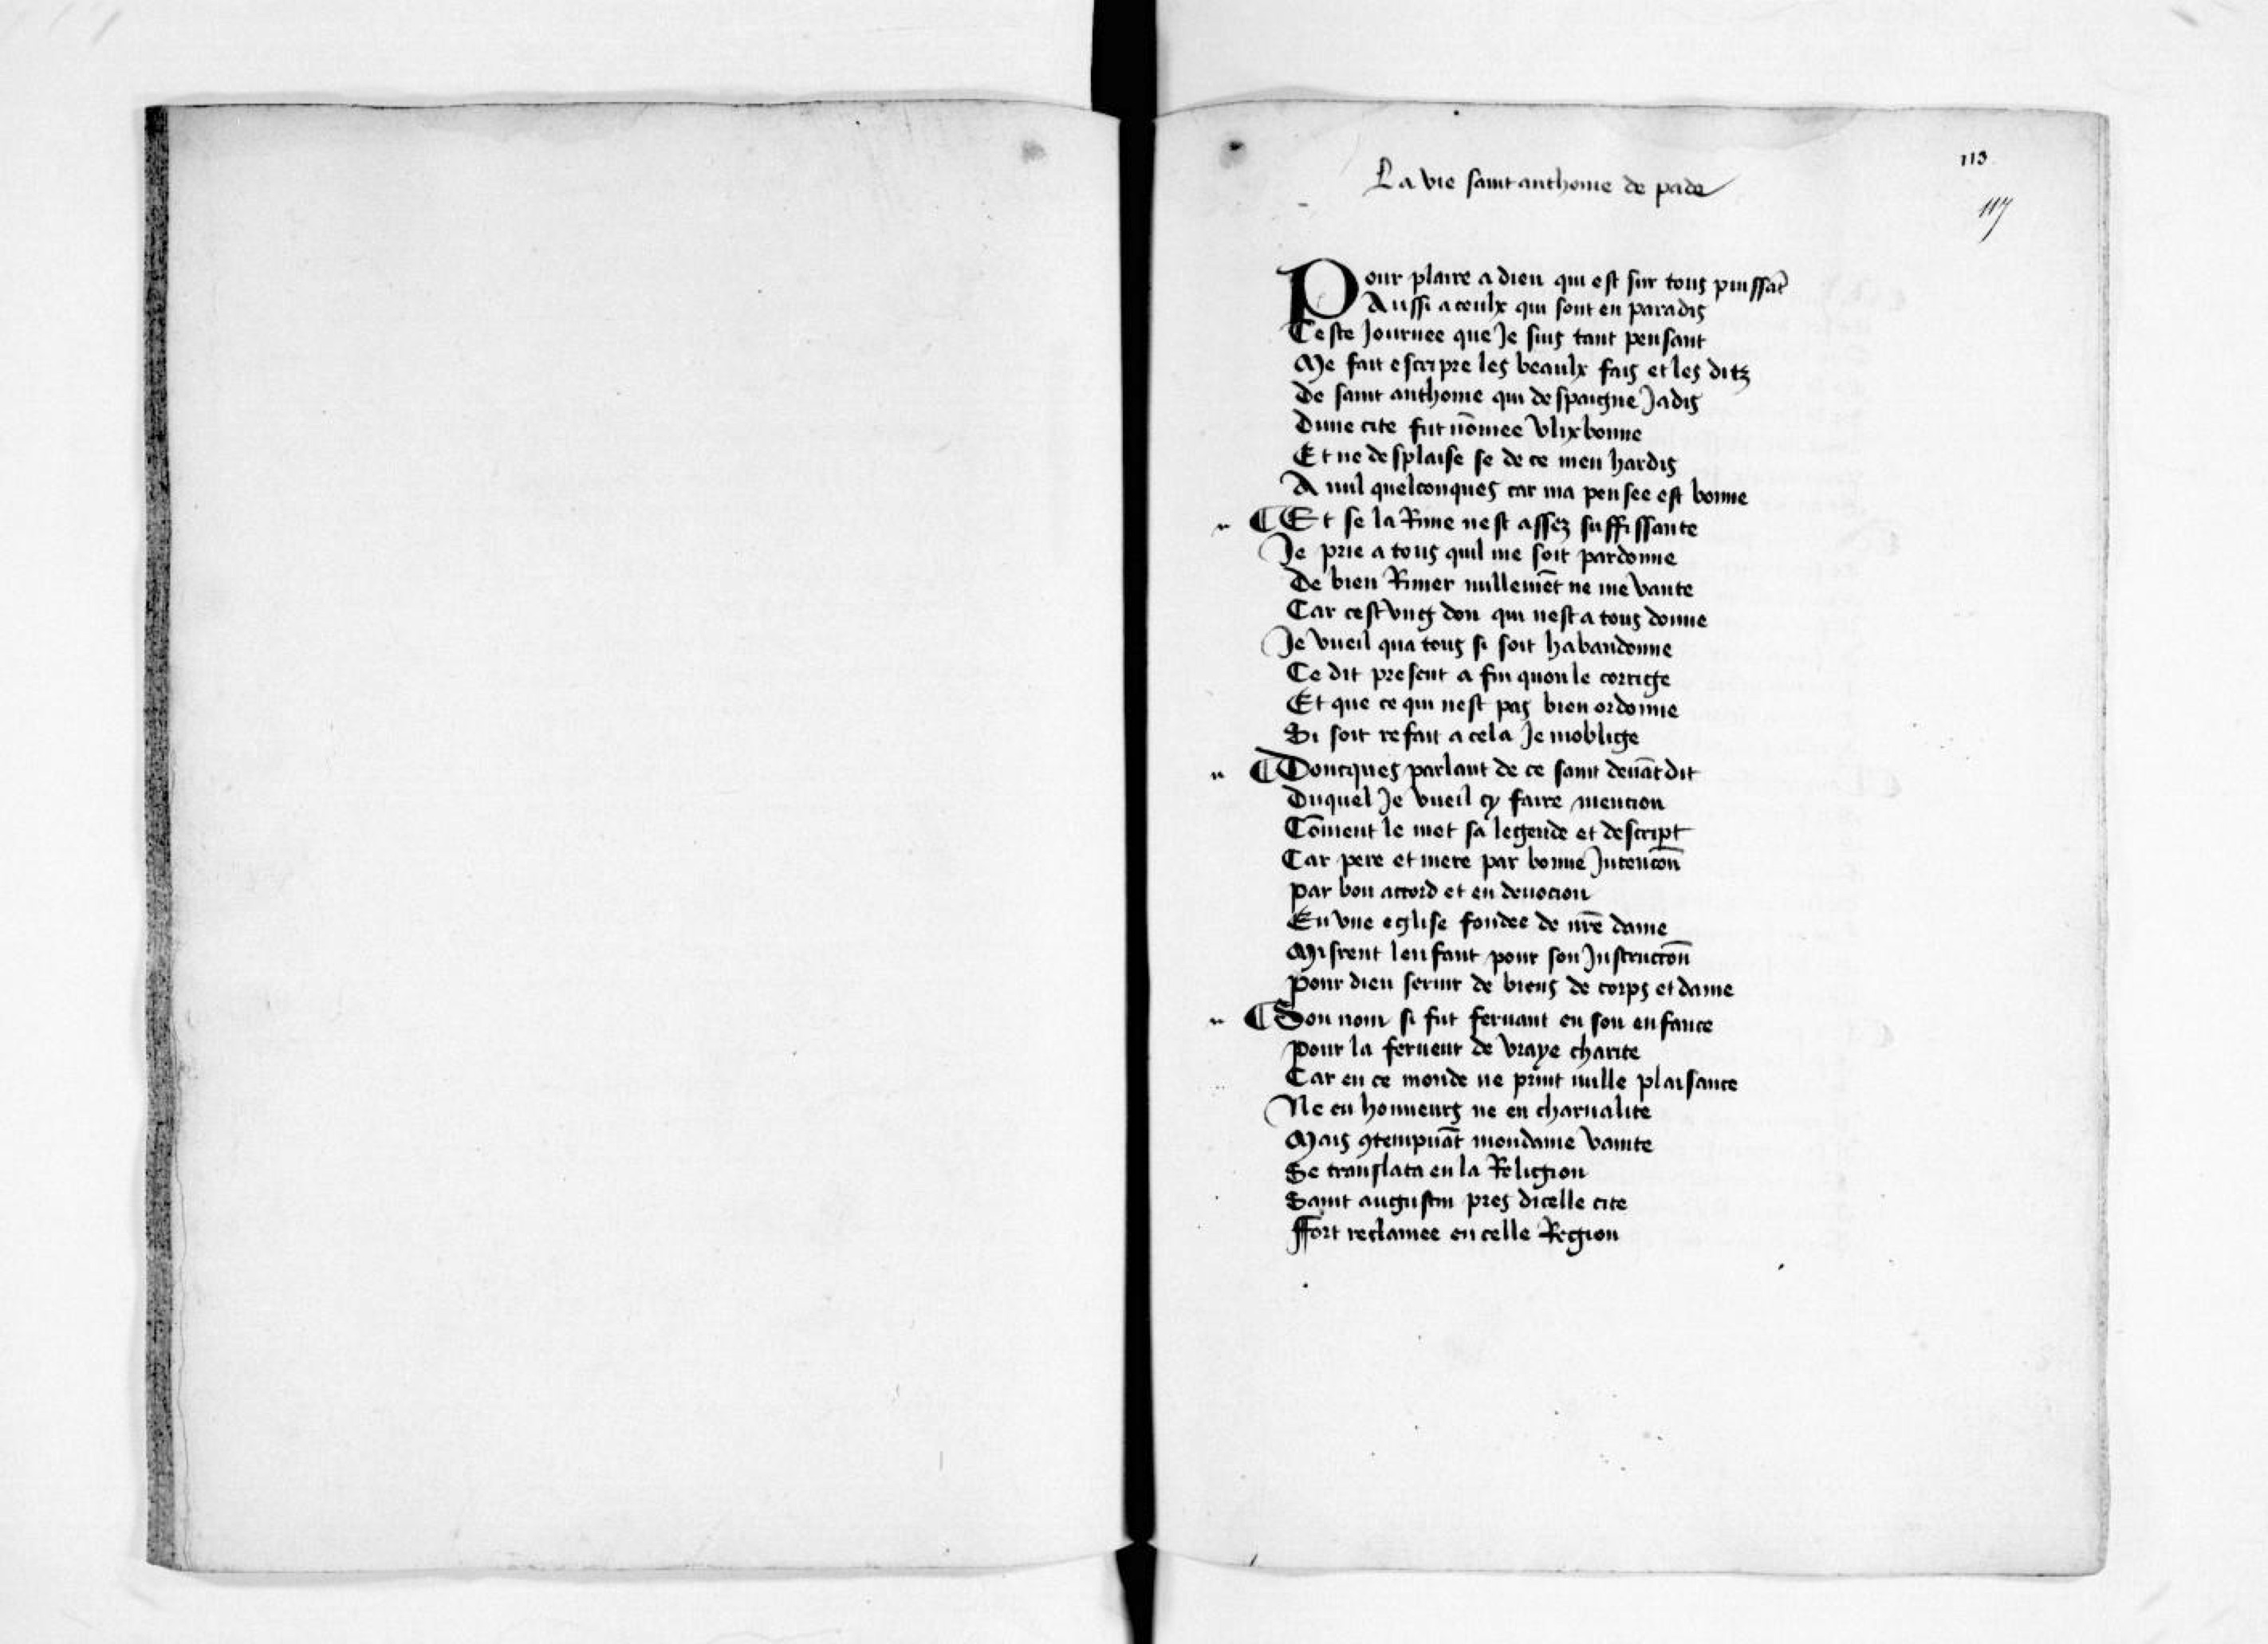 113
La vie saint anthoine de pade
117
Pour plaire a dieu qui est sur tous puissãt
Aussi a ceulx qui sont en paradis
Ceste Journee que Je suis tant pensant
Me fait escripre les beaulx fais et les ditz
De saint anthoine qui despaigne Jadis
Dune cite fut nõmee Vlixbonne
Et ne desplaise se de ce men hardis
A nul quelconques car ma pensee est bonne
¶ Et se la Rime nest assez suffissante
Je prie a tous quil me soit pardonne
De bien Rimer nullemẽt ne me vante
Car cest vng don qui nest a tous donne
Je vueil qua tous si soit habandonne
Ce dit present a fin quon le corrige
Et que ce qui nest pas bien ordonne
Si soit refait a cela Je moblige
¶ Doncques parlant de ce saint deuãt dit
Duquel Je vueil cy faire mencion
Cõment le met sa legende et descript
Car pere et mere par bonne Jntencoñ
par bon accord et en deuocion
En vne eglise fondee de nr̃e dame
Misrent lenfant pour son Jnstructoñ
Pour dieu seruir de biens de corps et dame
¶ Son nom si fut feruant en son enfance
Pour la ferueur de vraye charite
Car en ce monde ne print nulle plaisance
Ne en honneurs ne en charnalite
Mais ꝯtempnãt mondaine vainte
Se translata en la Religion
Saint augustin pres dicelle cite
Ffort reclamee en celle Region